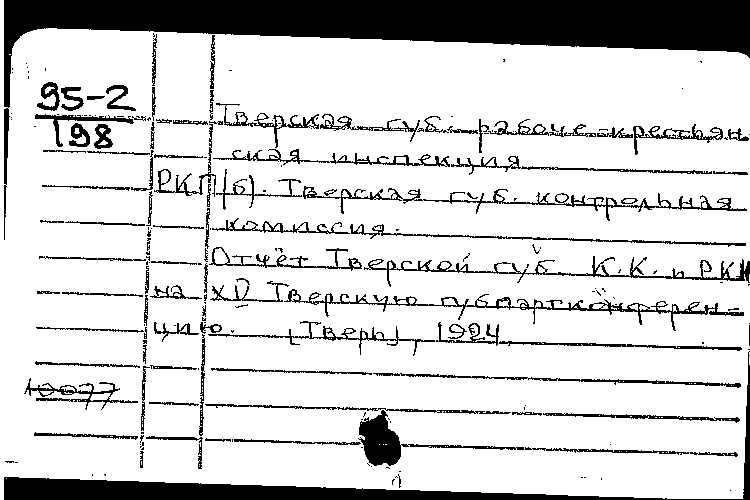 95-2
198
Тверская губ. рабоче-крестьян
ская инспекция
РКП(б). Тверская губ. контрольная
комиссия.
Отчёт Тверской губ. К.К. и РКИ
на Тверскую губпартконферен-
цию. [Тверь], 1924.
10077